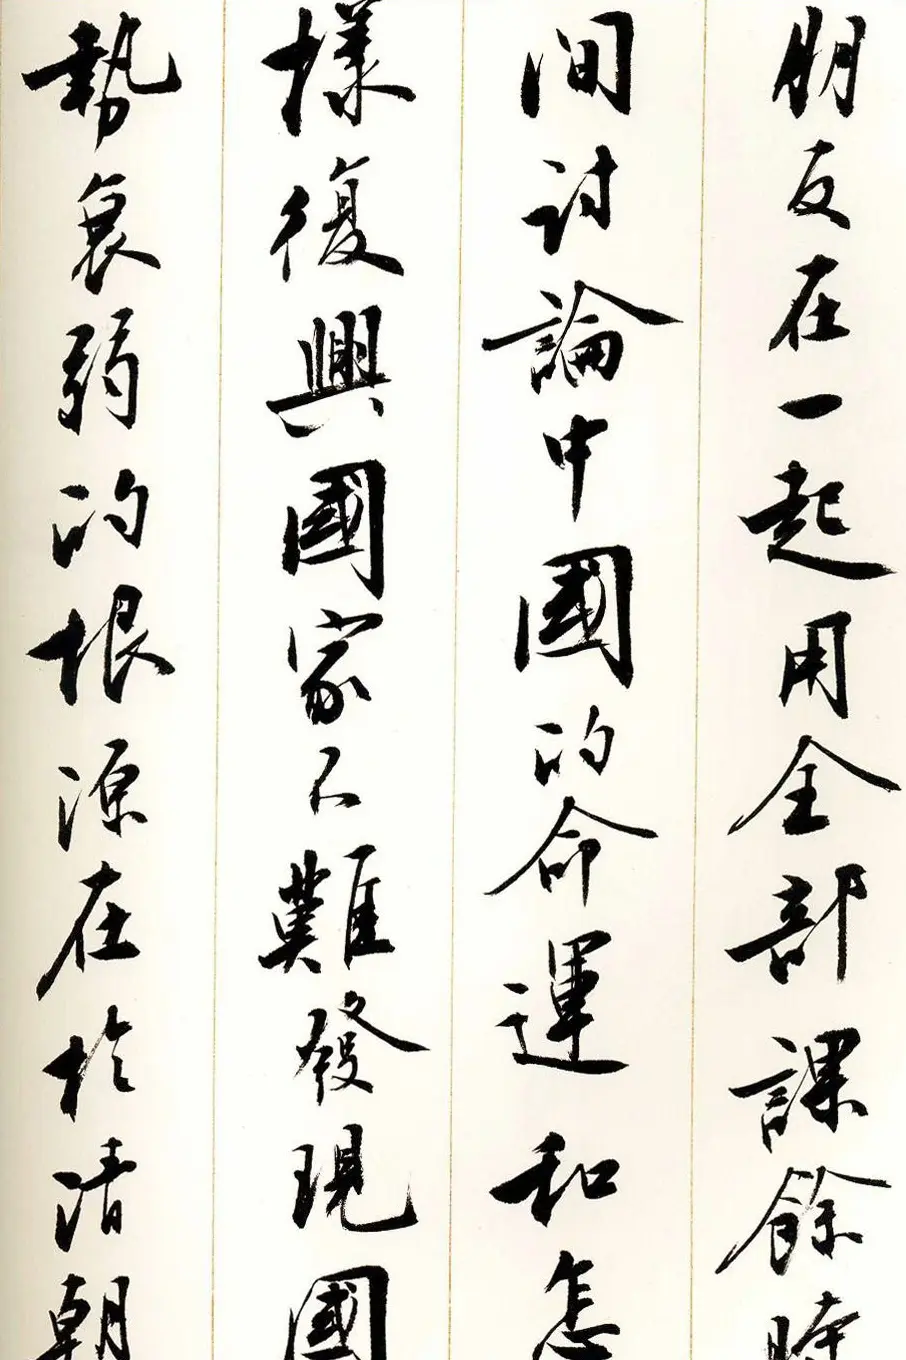 朋友在一起用全部課餘時
間討論中國的命運和怎
樣復興國家不難發現國
勢衰弱的根源在於清朝